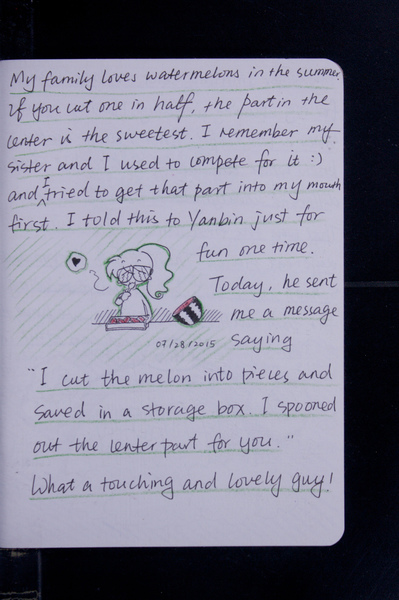 My family loves watermelons in the summer.
If you cut one in half, the part in the
center is the sweetest. I remember my
sister and I used to compete for it :)
and I tried to get that part into my mouth
first. I told this to Yanbin just for
fun one time.
Today, he sent
me a message
07/28/2015 saying
"I cut the melon into pieces and
saved in a storage box. I spooned
out the center part for you."
What a touching and lovely guy!